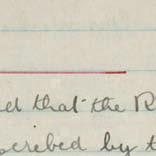 d that the R
scribed by t